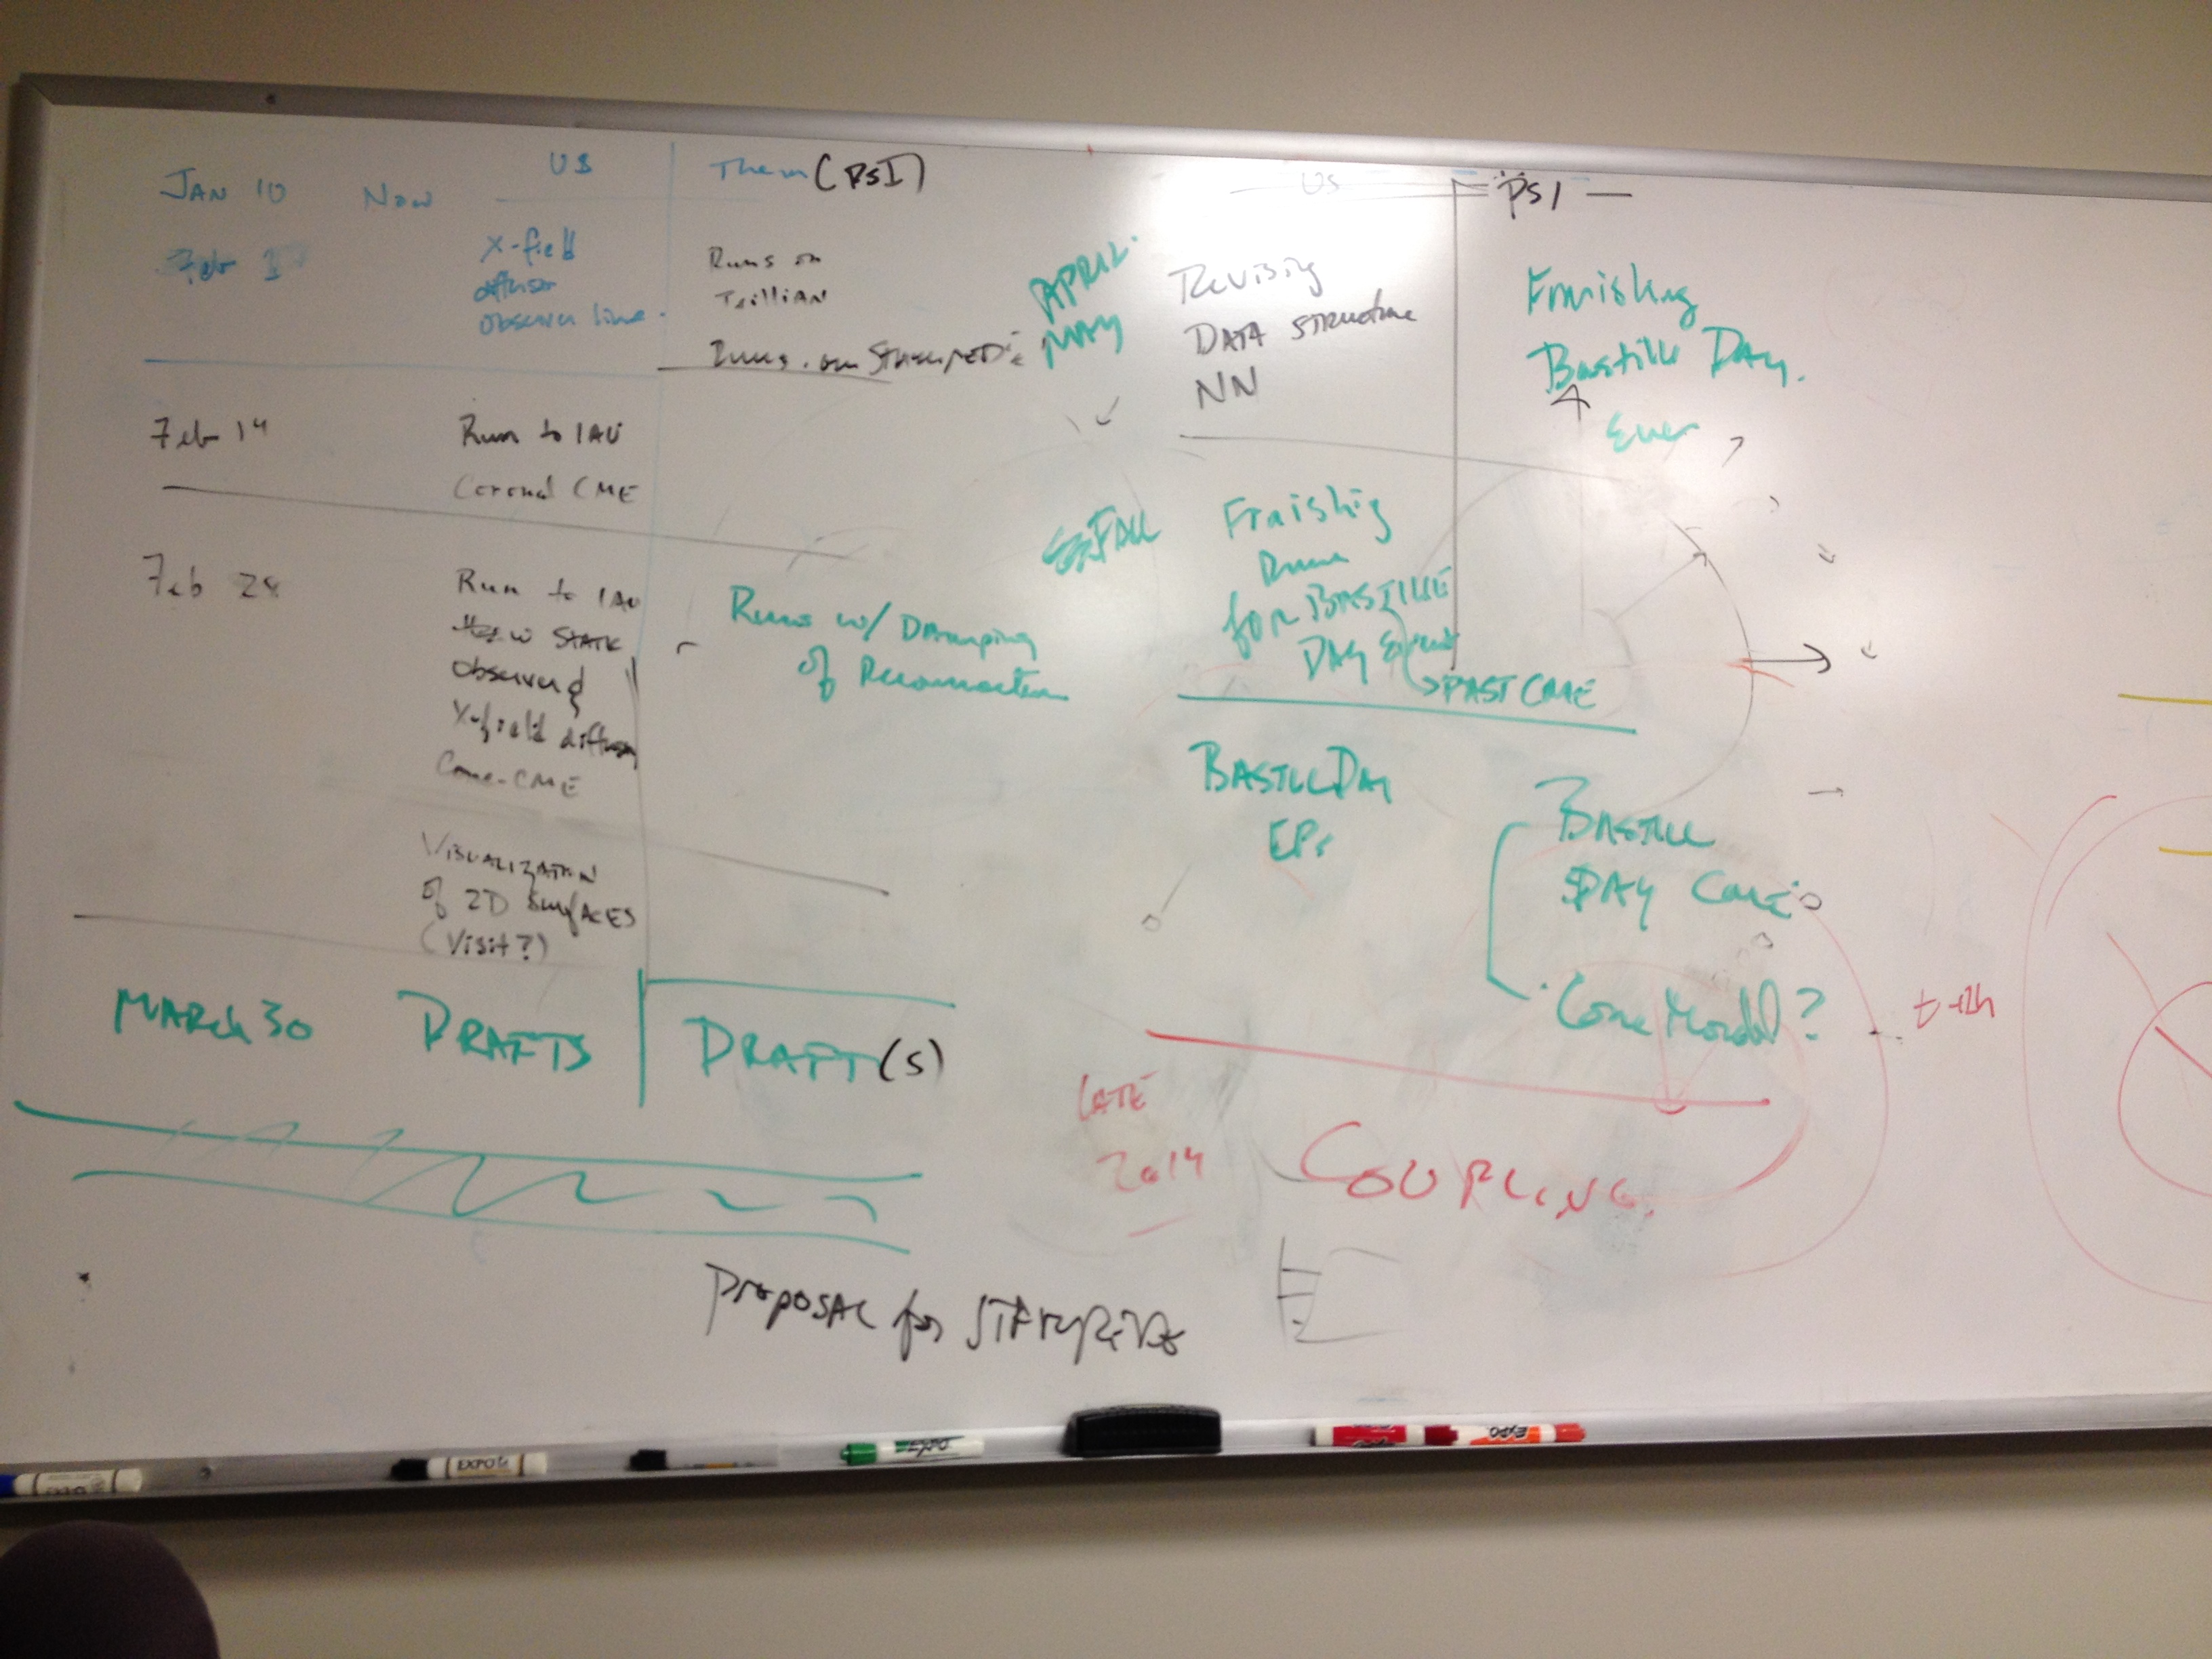 JAN 10 Now US Them (PSI)
Feb 1 X-field
diffusion
observer line.
Runs on
Trillian
Runs on Stampede
Feb 14 Run to 1AU
Coronal CME
Feb 28 Run to 1AU
w STATIC
observer &
X-field diffusion
Cone-CME
Runs w/ Damping
of Reconnection
Visualization
of 2D Surfaces
(Visit?)
March 30 DRAFTS DRAFT(S)
US PSI
APRIL
MAY
Revising
DATA structure
NN
Finishing
Bastille Day.
Fall
Finishing
Runs
for BASTILLE
DAY Event
PAST CME
Bastille Day
EPs
Bastille
DAY CME
Cone Model?
t+2h
Late
2014
Coupling
Proposal for Stampede
EXPO
EXPO
EXPO